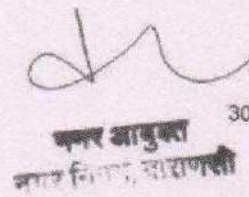 30
नगर आयुक्त
नगर निगम, वाराणसी